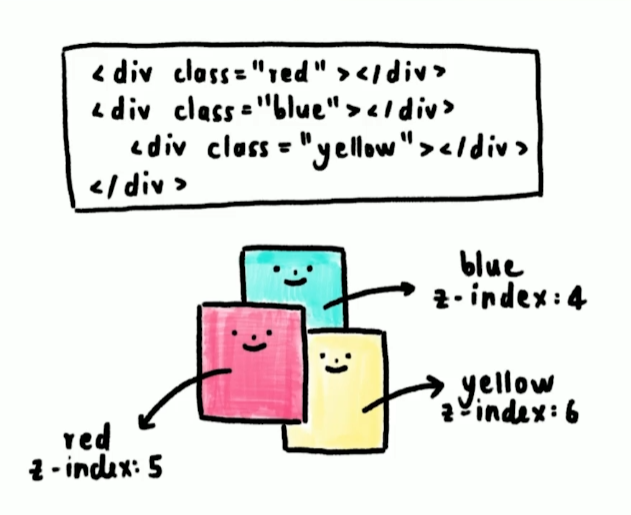 <div class="red"></div>
<div class="blue"></div>
<div class="yellow"></div>
</div>
blue
z-index:4
yellow
z-index:6
red
z-index:5